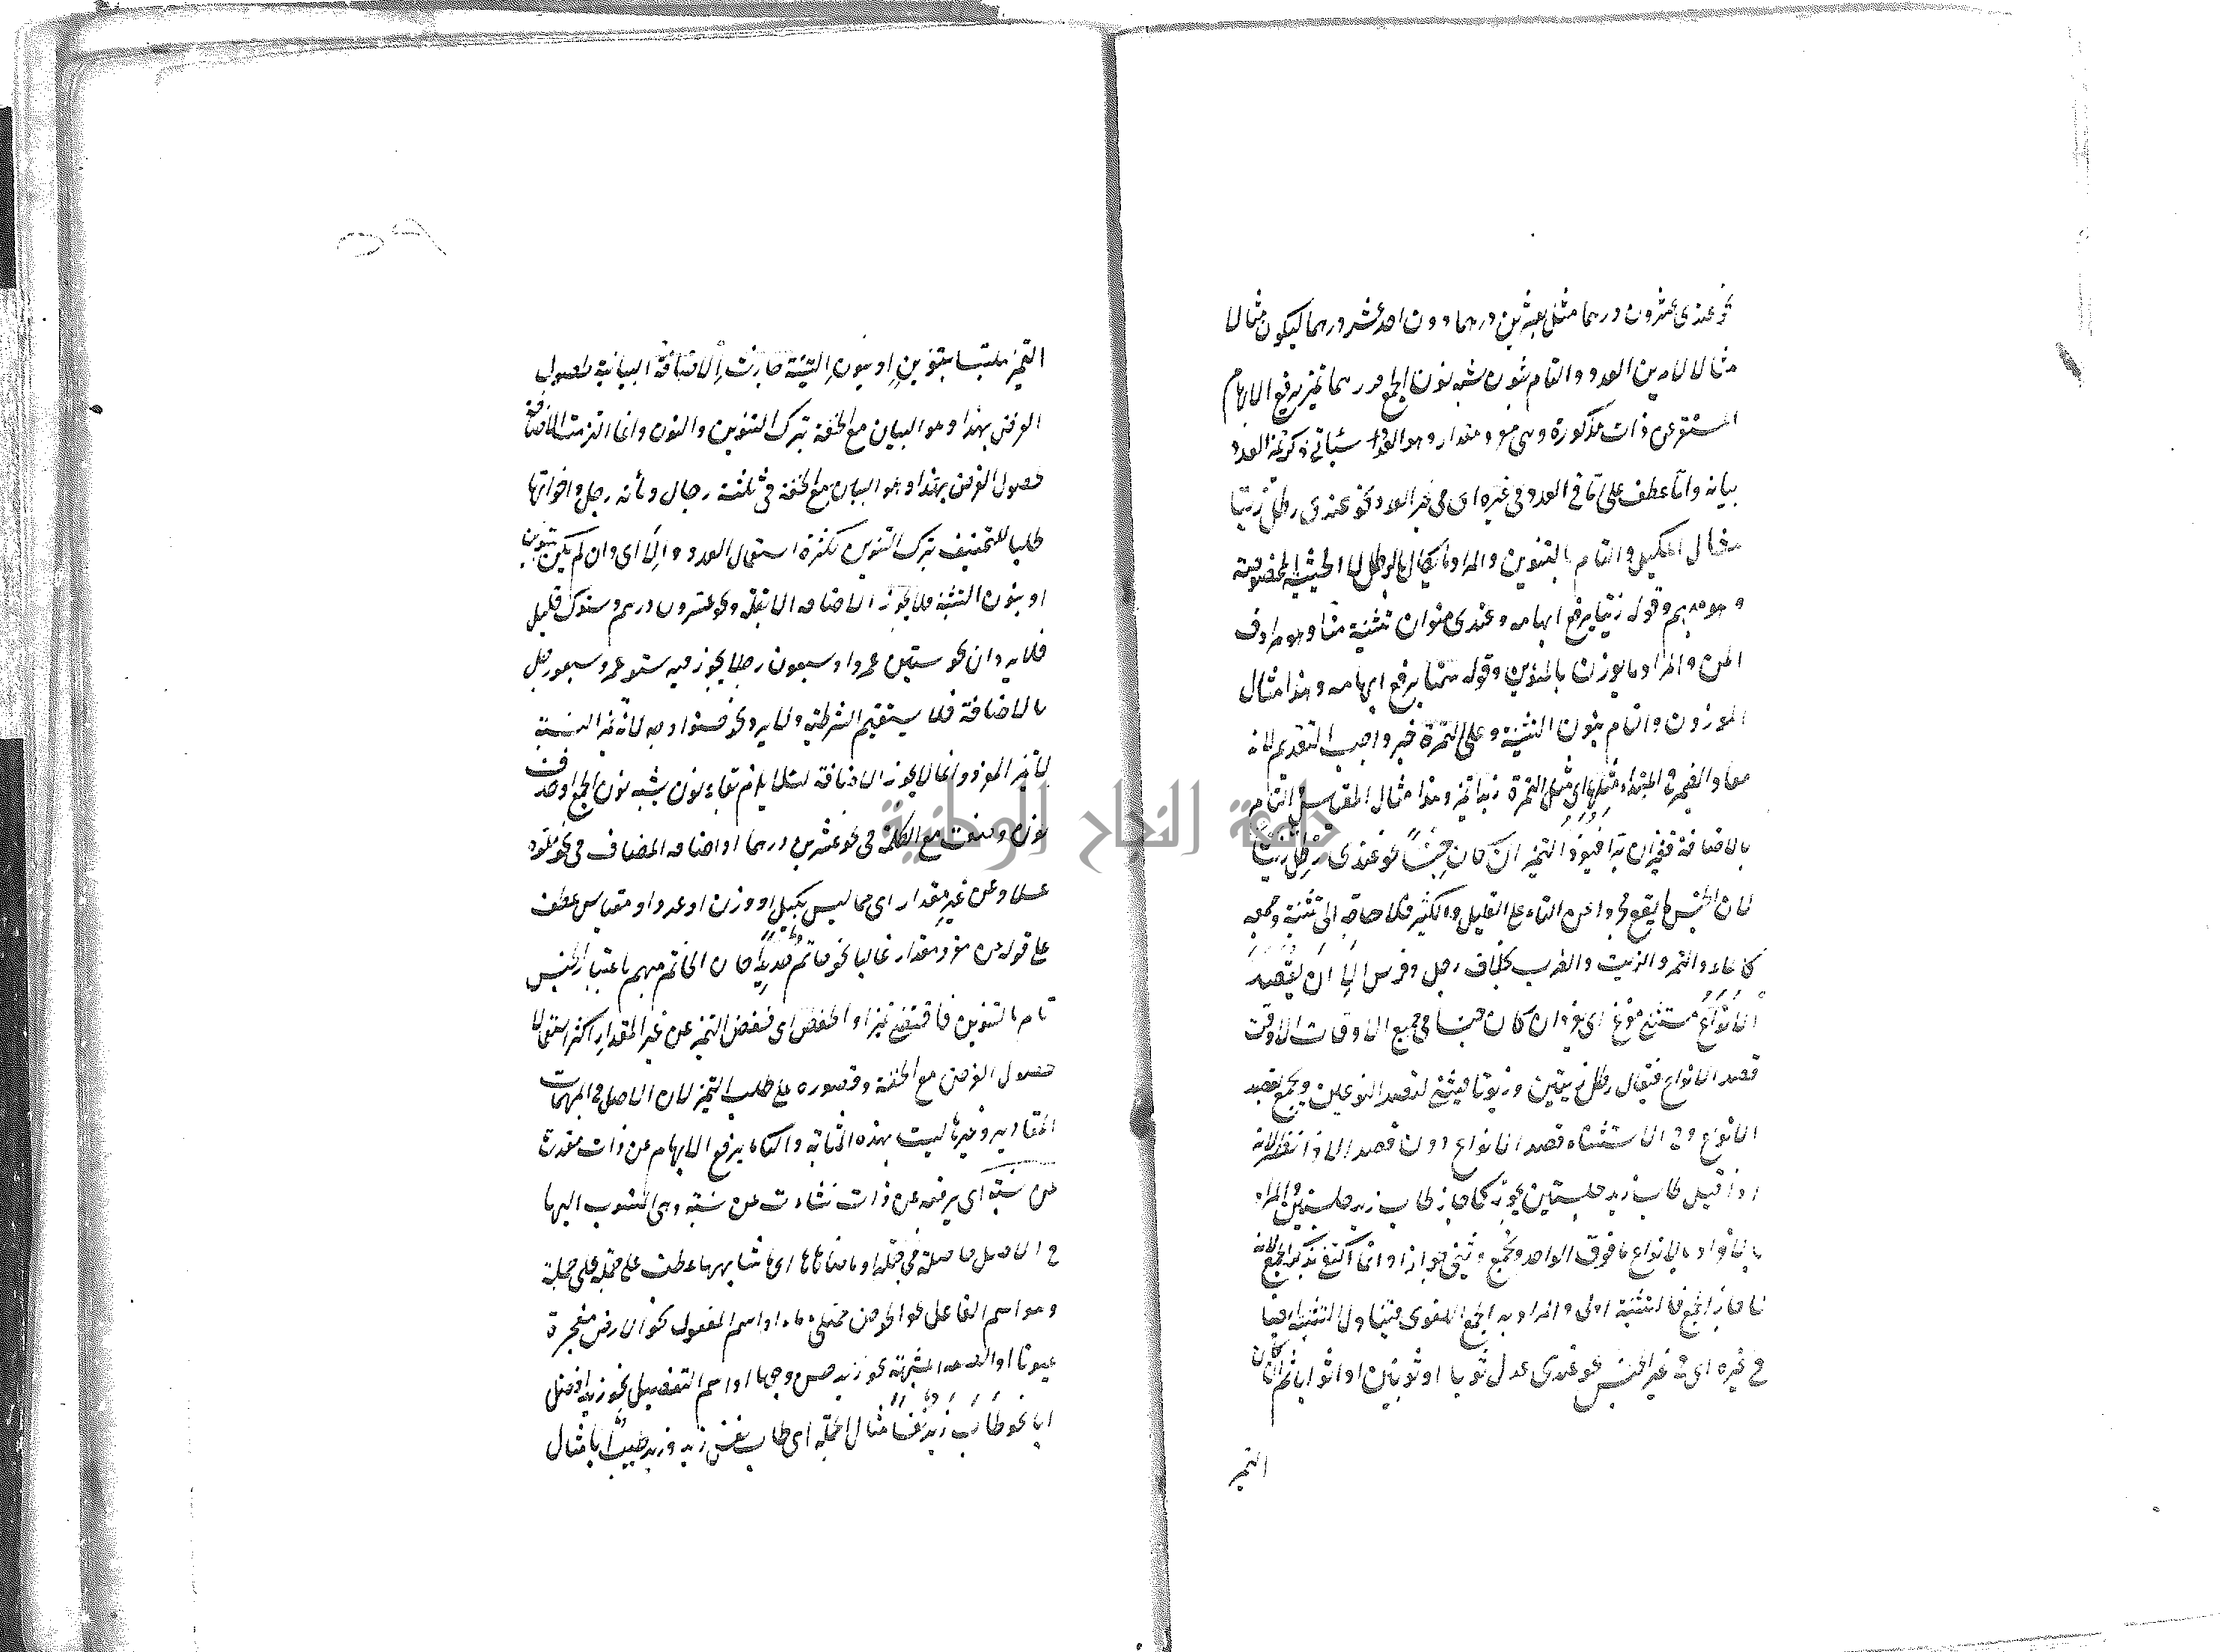 نحو عندى عشرون درهما مثل بعشرين درهما دون احد عشر درهما ليكون مثالا
مثالا لامرين العدد والتام بنون شبه نون الجمع ودرهما تميز يرفع الابهام
المستقر عن ذات مذكورة وهى مفرد مقدار وهو العدد سيأتى ذكر تميز العدد
بيانه واما عطف على اما فى العدد فى غيره اى فى غير العدد نحو عندى رطل زيتا
مثال المكيل والتام بالتنوين والمراد ما يكال بالرطل لا الحيثية المخصوصة
وهو مبهم وقوله زيتا يرفع ابهامه وعندى منوان تثنية منا وهو مرادف
المن والمراد ما يوزن بالمنوين وقوله سمنا يرفع ابهامه وهذا مثال
الموزون والتام بنون التثنية وعلى التمرة خبر واجب التقديم لانه
معاد الضمير فى المبتداء مثلها اى مثل التمرة زبدا تميز وهذا مثال المقياس والتام
بالاضافة قفيزان برا فيفرد التميز ان كان جنسا نحو عندى رطل زيتا
لان الجنس ما يقع مجردا عن التاء على القليل والكثير فلا حاجة الى تثنية وجمعه
كالماء والتمر والزيت والضرب بخلاف رجل وفرس الا ان يقصد
الانواع مستثنى مفرغ اى يفرد ان كان جنسا فى جميع الاوقات الا وقت
قصد الانواع فيقال رطل زيتين وزيوتا فيثنى لقصد النوعين ويجمع لقصد
الانواع وفى الاستثناء قصد الانواع دون قصد الافراد نظر لانه
اذا قيل طاب زيد جلستين يجوز كما جاز طاب زيد جلستين والمراد
بالانواع ما فوق الواحد ويجمع ويثنى جوازا وانما اكتفى بذكر الجمع لانه
لما جاز الجمع فالتثنية اولى والمراد به الجمع اللغوى فيتناول التثنية ايضا
فى غيره اى فى غير الجنس نحو عندى عدل ثوبا او ثوبين او اثوابا ثم ان كان
التميز
جامعة النجاح الوطنية
التميز ملتبسا بتنوين او بنون التثنية جازت الاضافة البيانية لحصول
الغرض بهذا وهو البيان مع الخفة بترك التنوين والنون وانما التزمت الاضافة
لحصول الغرض بهذا وهو البيان مع الخفة فى ثلثة رجال ومأنه رجل واخواتها
طلبا للتخفيف بترك التنوين لكثرة استعمال العدد والا اى وان لم يكن بتنوين
او بنون التثنية فلا يجوز الاضافة الا بقلة ونحو عشرون درهم وستوك قليل
فلا يرد ان نحو ستين عمروا وسبعون رطلا يجوز فيه ستو عمرو وسبعو رطل
بالاضافة فلا يستقيم الشرطية ولا يرد نحو حسنوا وجه لانه تميز النسبة
لا تميز المفرد وانما لا يجوز الاضافة لئلا يلزم بقاء نون شبه نون الجمع او حذف
نون وضعت مع الكلمة فى نحو عشرين درهما او اضافة المضاف فى نحو ملؤه
عسلا وعن غير مقدار اى مما ليس بكيل او وزن او عدد او مقياس عطف
على قوله من مفرد مقدار غالبا نحو خاتم حديدا فان الخاتم مبهم باعتبار الجنس
تام بالتنوين فاقتضى تميزا والخفض اى فخفض التميز عن غير المقدار اكثر استعمالا
لحصول الغرض مع الخفة وقصوره على طلب التميز لان الاصل فى المبهمات
المقادير وغيرها ليست بهذه المثابة والثانى يرفع الابهام عن ذات مقدرة
عن نسبة اى يرفعه عن ذات نشاءت عن نسبة وهى المنسوب اليها
فى الاصل حاصلة فى جملة او ما ضاهاها اى ما شابهها عطف على جملة على جملة
وهو اسم الفاعل نحو الحوض ممتلئ ماء او اسم المفعول نحو الارض مفجرة
عيونا او الصفة المشبهة نحو زيد حسن وجها او اسم التفضيل نحو زيد افضل
ابا نحو طاب زيد نفسا مثال الجملة اى طاب نفس زيد وزيد طيب ابا مثال